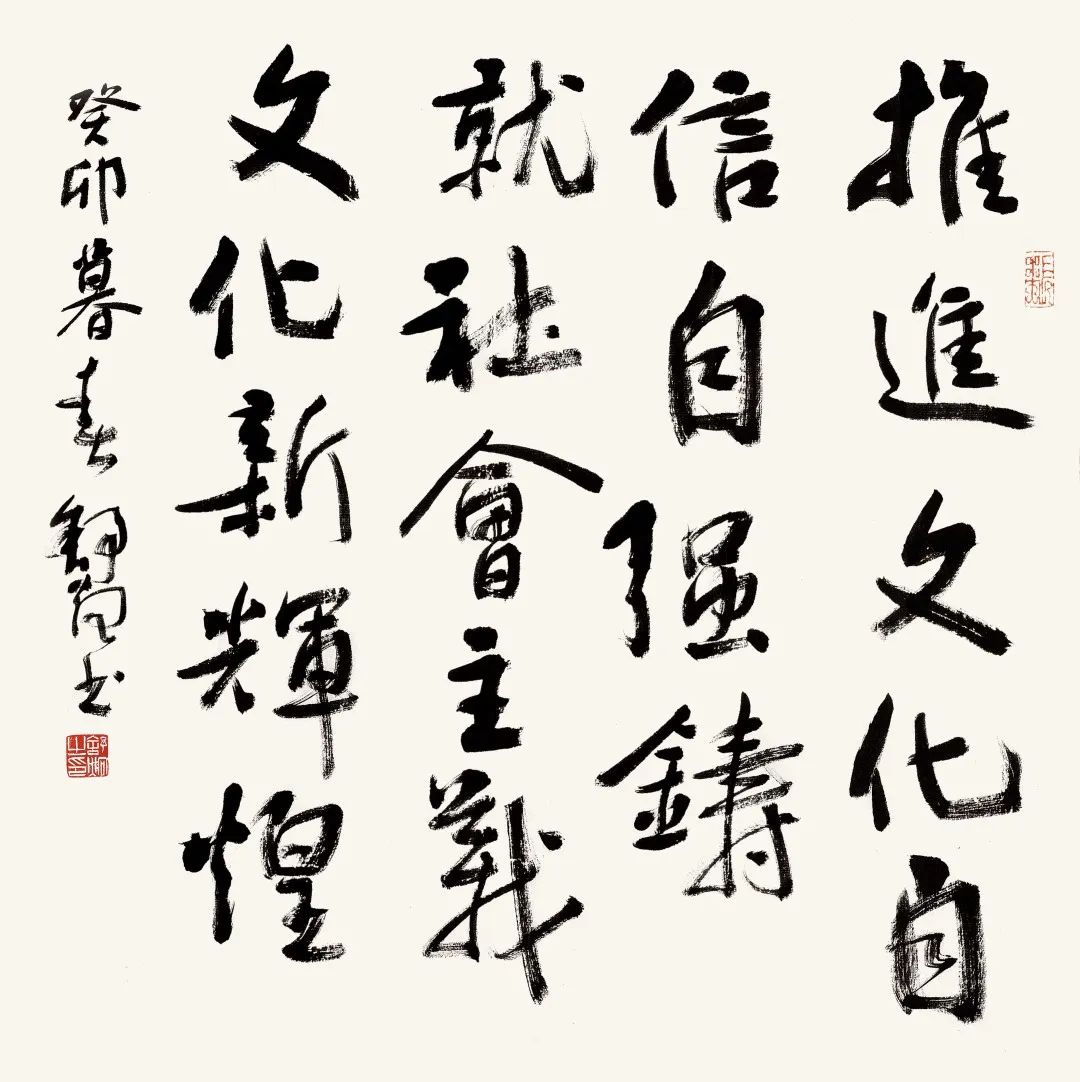 推進文化自
信自强鑄
就社會主義
文化新輝煌
癸卯暮春舒炯书